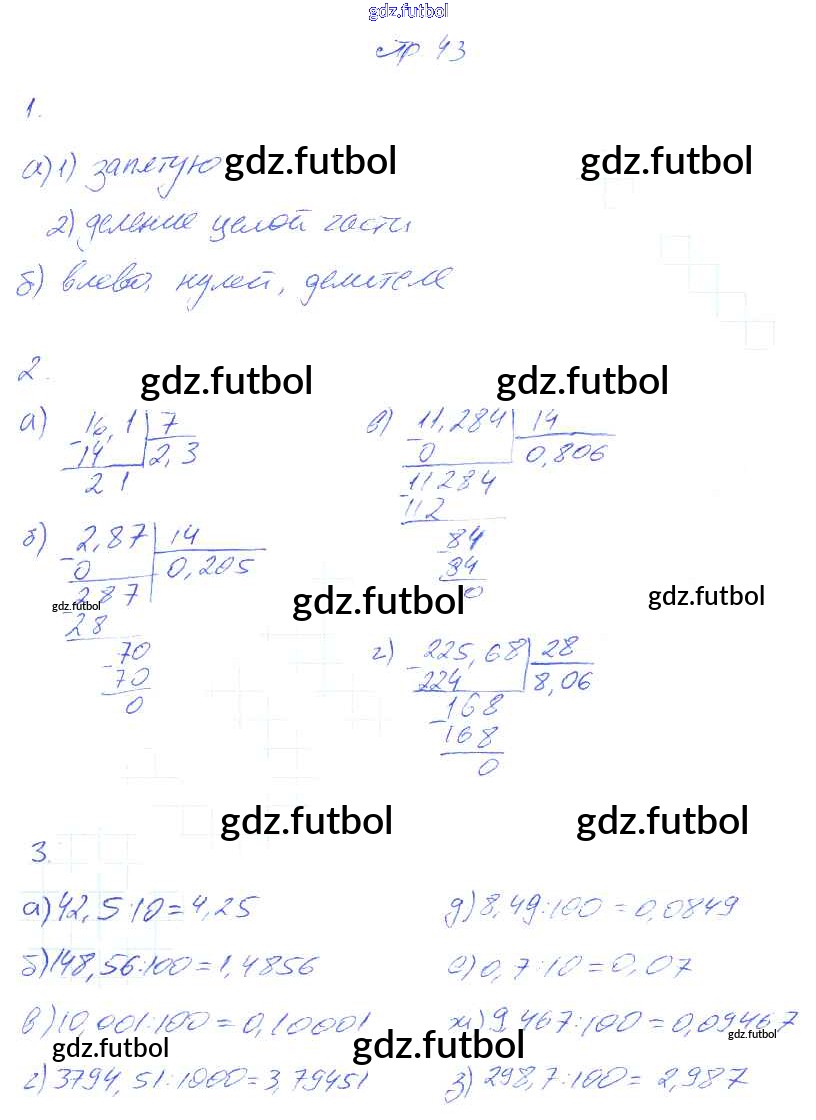 gdz.futbol
стр 43
1.
а) 1) запятую gdz.futbol gdz.futbol
2) деление целой части
б) влево, нулей, делителе
2. gdz.futbol gdz.futbol
а) 16,1 | 7
- 14 | 2,3
21
б) 2,87 | 14
- 0 | 0,205
287
gdz.futbol
28
- 70
70
0
в) 11,284 | 14
- 0 | 0,806
- 11284
112
- 84
84
0
gdz.futbol gdz.futbol
г) - 225,68 | 28
224 | 8,06
- 168
168
0
gdz.futbol gdz.futbol
3.
а) 42,5:10=4,25
б) 148,56:100=1,4856
в) 10,001:100=0,10001
г) 3794,51:1000=3,79451
д) 8,49:100=0,0849
е) 0,7:10=0,07
ж) 9,467:100=0,09467
з) 298,7:100=2,987
gdz.futbol gdz.futbol gdz.futbol